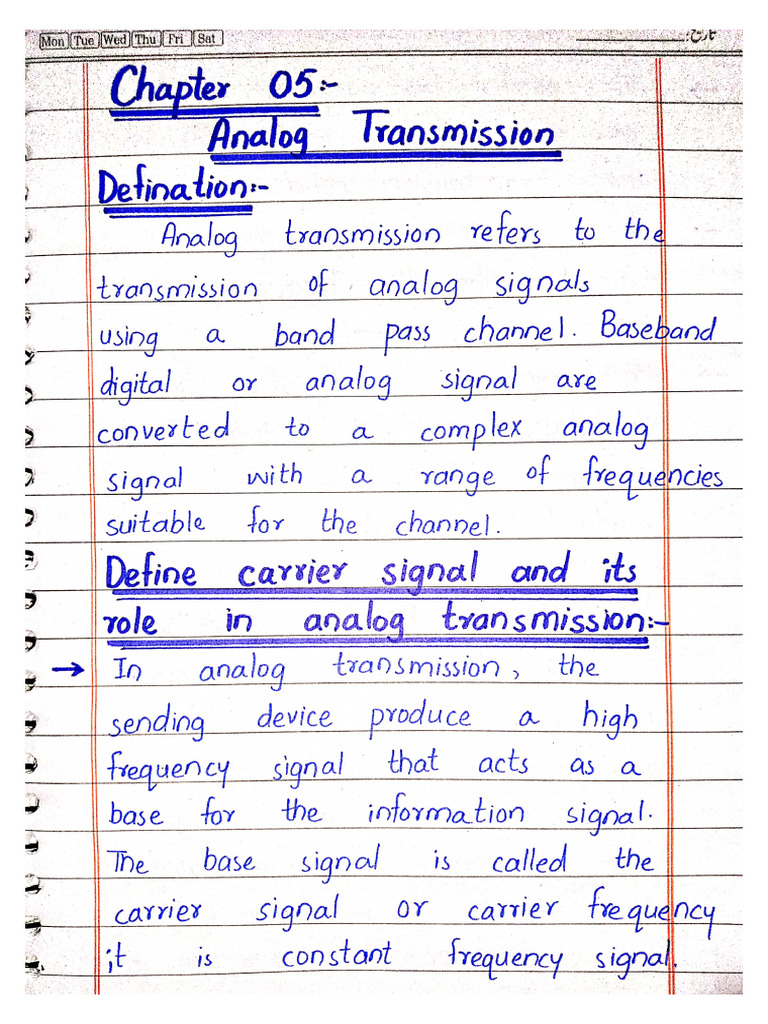 Mon Tue Wed Thu Fri Sat تاریخ:
Chapter 05:-
Analog Transmission
Defination:-
Analog transmission refers to the
transmission of analog signals
using a band pass channel. Baseband
digital or analog signal are
converted to a complex analog
signal with a range of frequencies
suitable for the channel.
Define carrier signal and its
role in analog transmission:-
→ In analog transmission, the
sending device produce a high
frequency signal that acts as a
base for the information signal.
The base signal is called the
carrier signal or carrier frequency
it is constant frequency signal.